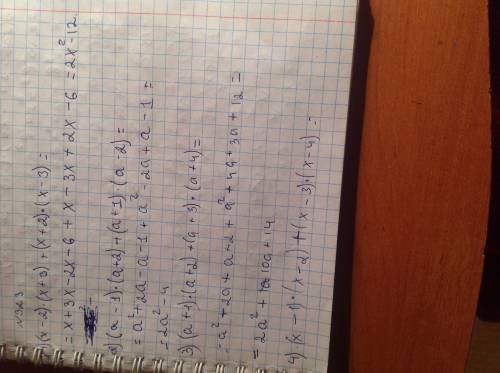 N 323
1)(x-2)(x+3)+(x+2)·(x-3)=
=x+3x-2x-6+x-3x+2x-6=2x²-12.
2)(a-1)·(a+2)+(a+1)·(a-2)=
=a²+2a-a-1+a²-2a+a-1=
=2a²-4
3)(a+1)·(a+2)+(a+3)·(a+4)=
=a²+2a+a+2+a²+4a+3a+12=
=2a²+10a+14
4)(x-1)·(x-2)+(x-3)·(x-4)=